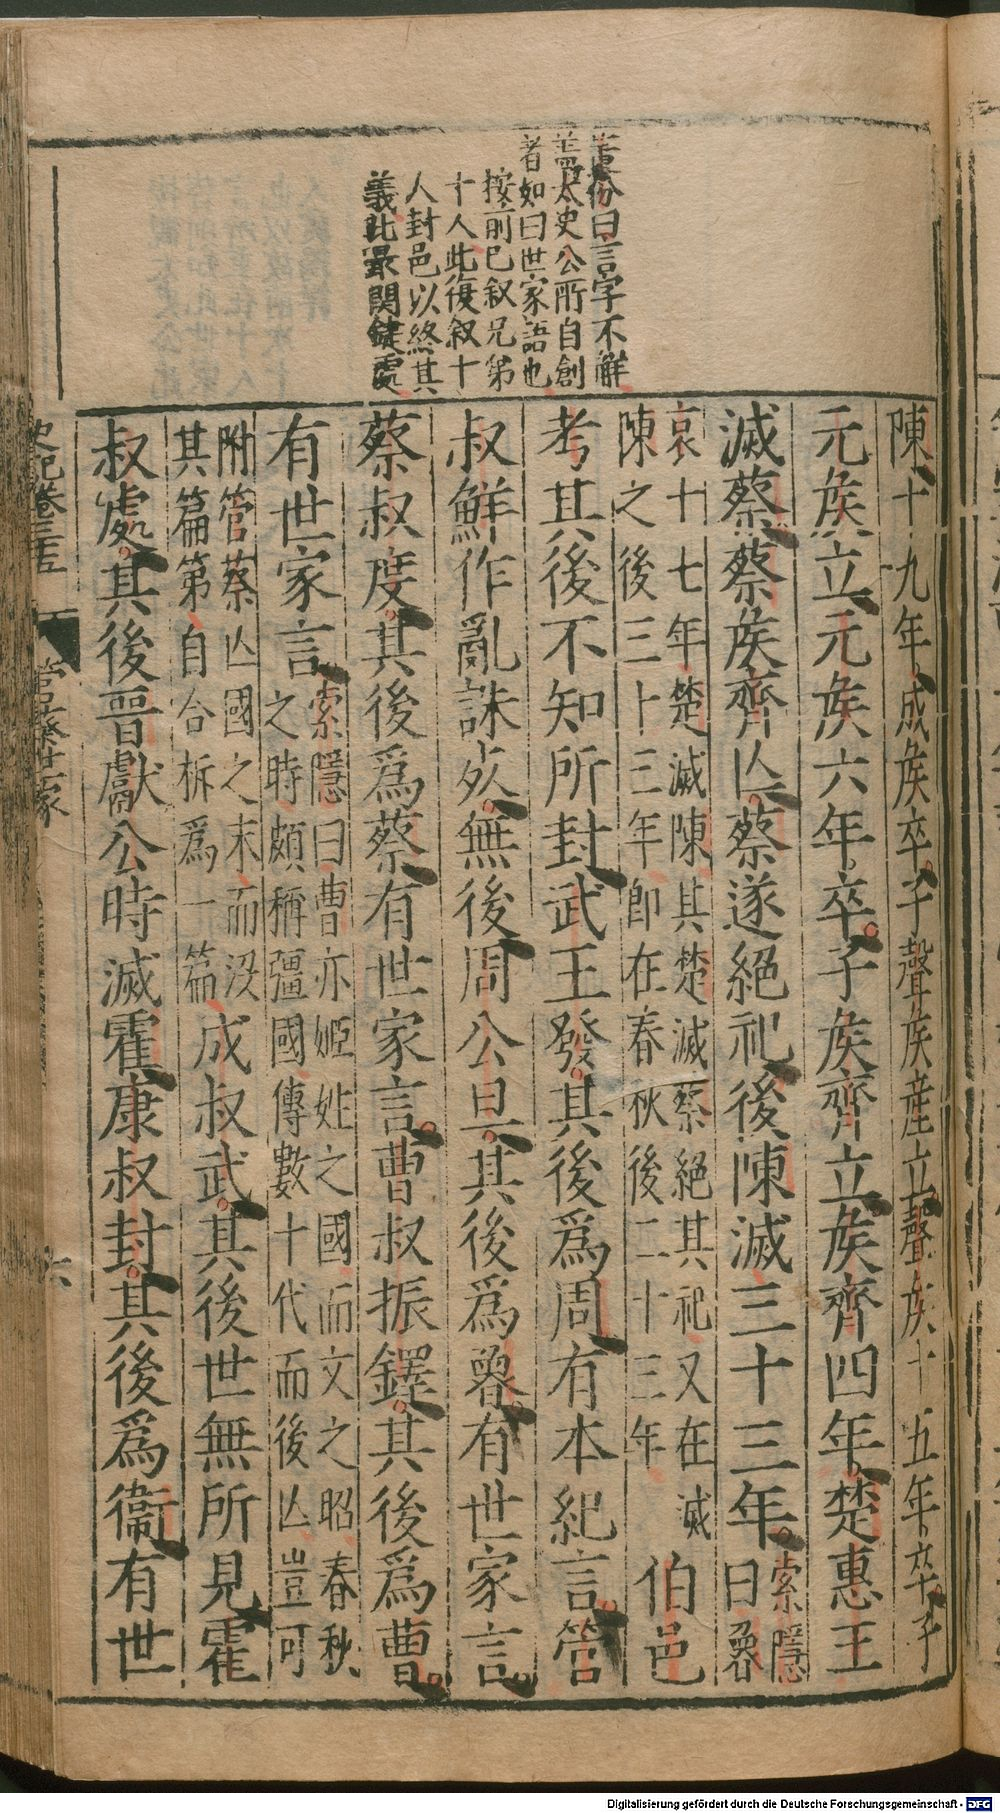 董份曰言字不解
蓋太史公所自創
者如曰世家語也
按前已叙兄弟
十人此復叙十
人封邑以終其
義此最関鍵處
陳十九年成矦卒子聲矦産立聲矦十五年卒子
元矦立元矦六年卒子矦齊立矦齊四年楚惠王
滅蔡蔡矦齊亾蔡遂絕祀後陳滅三十三年索隱
曰魯
哀十七年楚滅陳其楚滅蔡絕其祀又在滅
陳之後三十三年即在春秋後二十三年伯邑
考其後不知所封武王發其後爲周有本紀言管
叔鮮作亂誅死無後周公旦其後爲魯有世家言
蔡叔度其後爲蔡有世家言曹叔振鐸其後爲曹
有世家言索隱曰曹亦姬姓之國而文之昭春秋
之時頗稱彊國傳數十代而後亾豈可
附管蔡亾國之末而沒
其篇第自合析爲一篇成叔武其後世無所見霍
叔處其後晉獻公時滅霍康叔封其後爲衞有世
史記卷三十五 管蔡世家 六
Digitalisierung gefördert durch die Deutsche Forschungsgemeinschaft - DFG